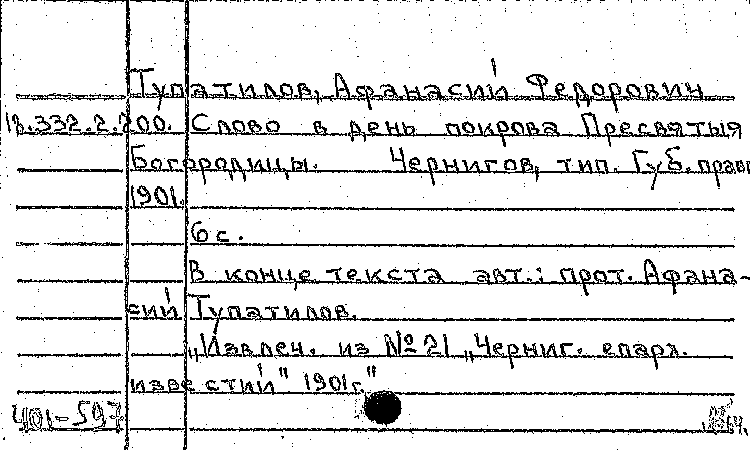 Тупатилов, Афанасий Федорович
18.332.2.200. Слово в день покрова Пресвятыя
Богородицы. Чернигов, тип. Губ. правл
1901.
6 с.
В конце текста авт.: прот. Афана-
сий Тупатилов.
„Извлеч. из № 21 „Черниг. епарх.
известий" 1901г."
401-597